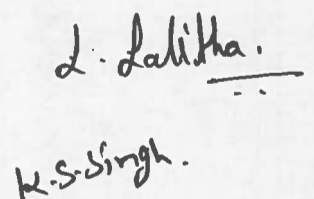 L. Lalitha.
K.S. Singh.